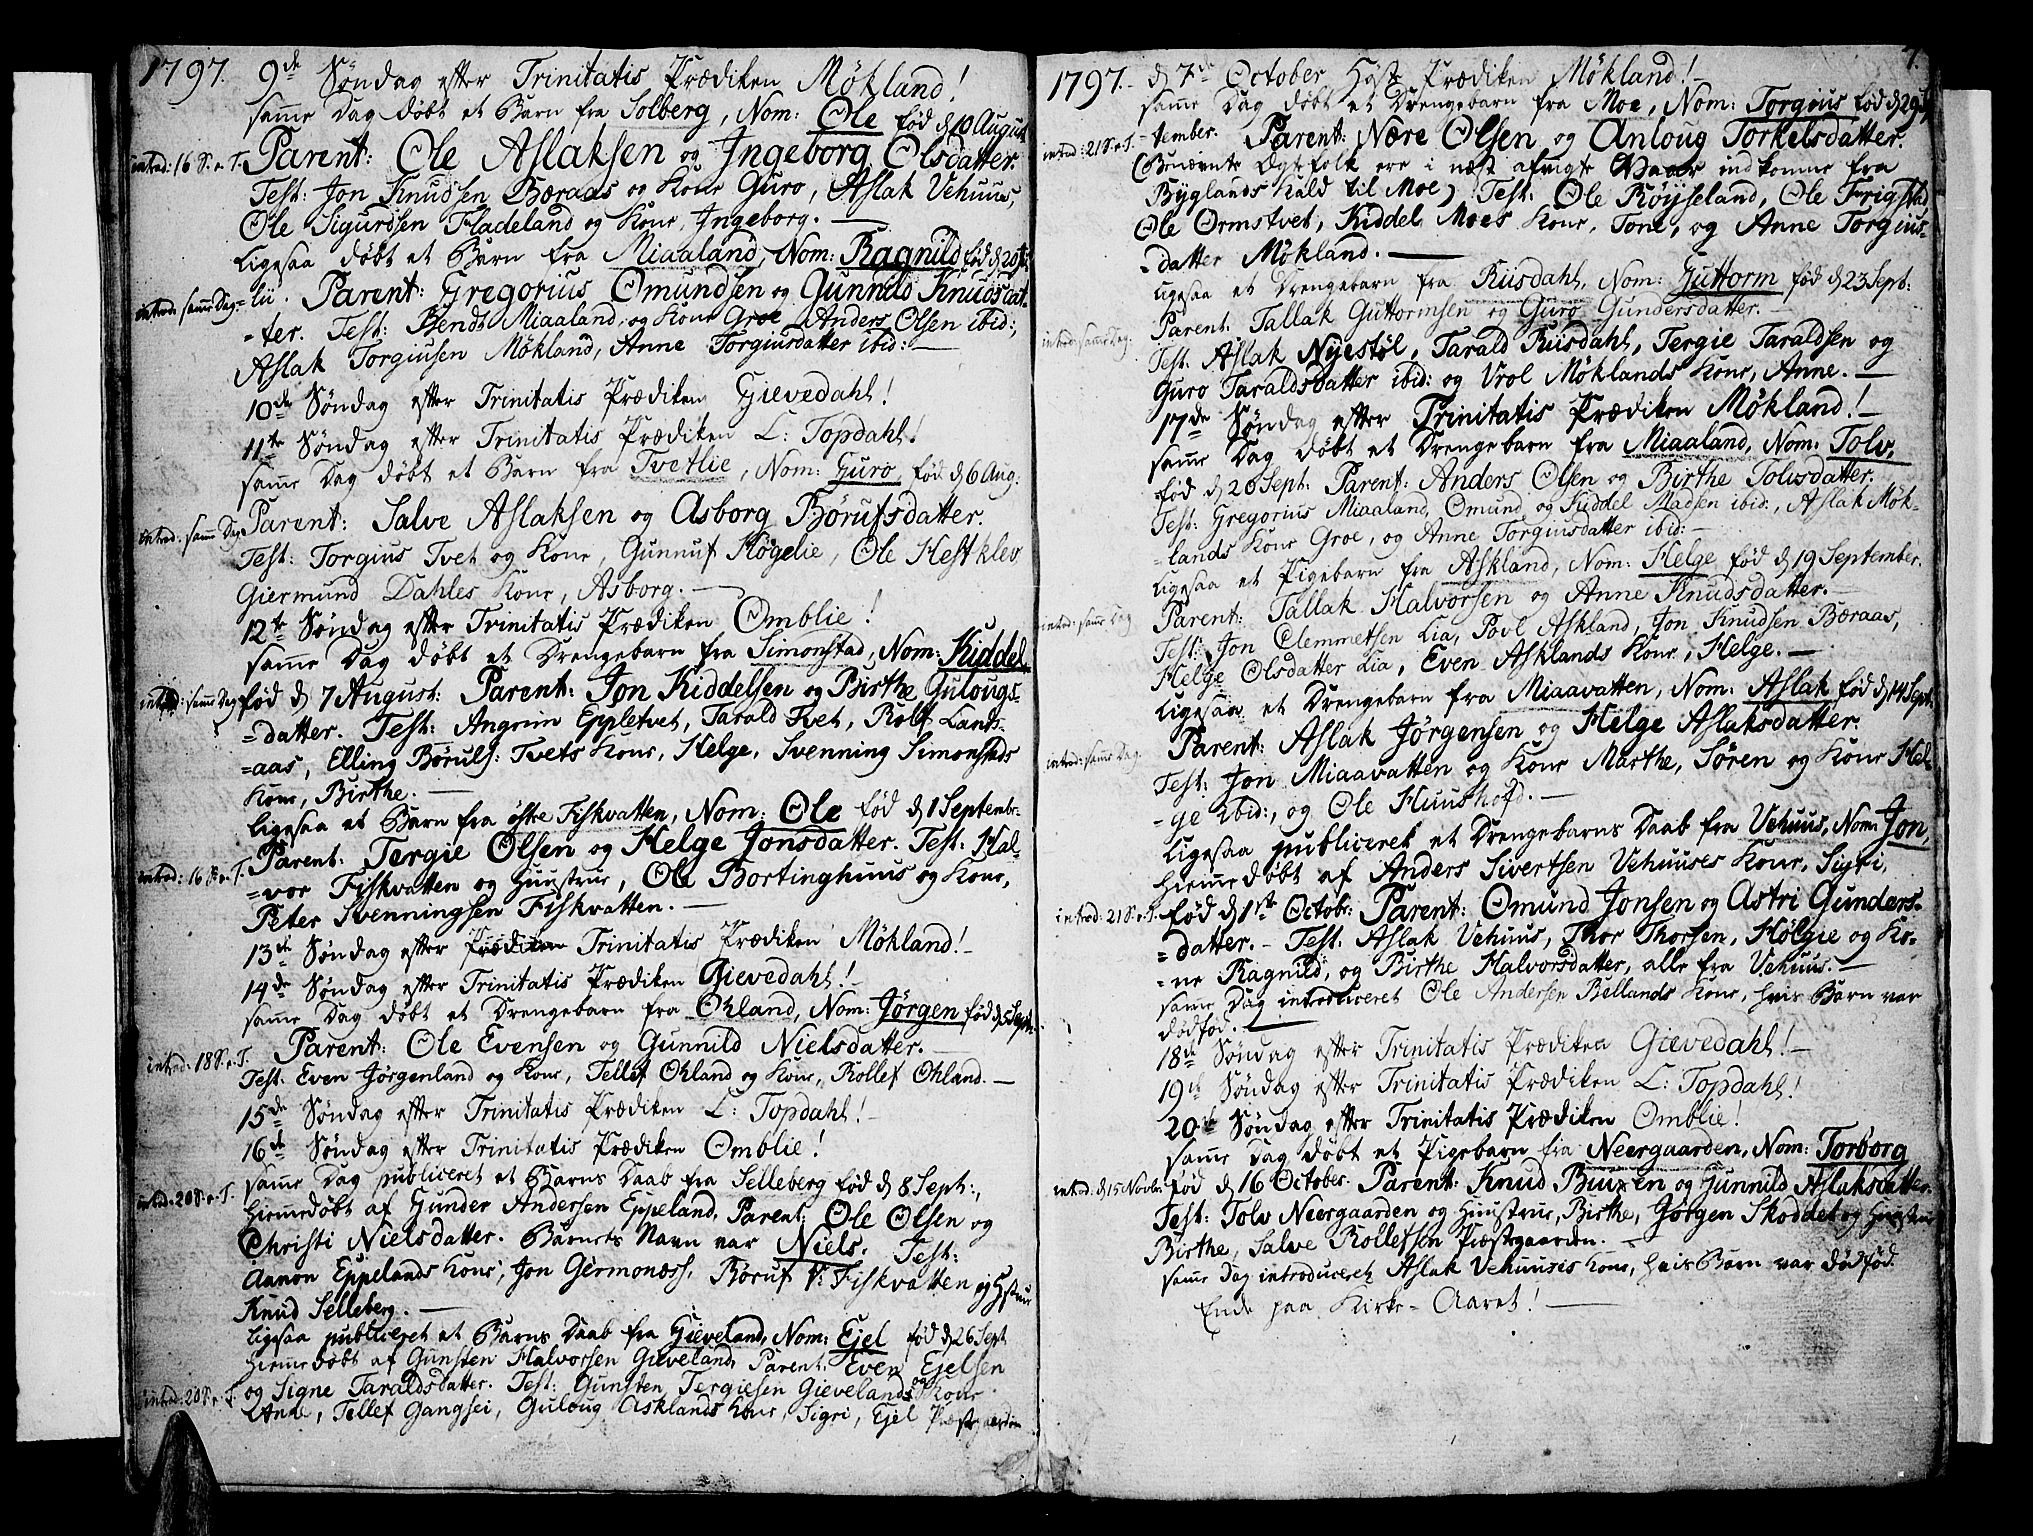 1797. 9de Søndag efter Trinitatis Prædiken Møkland!
samme Dag døbt et Barn fra Solberg, Nom: Ole fød d 10 August
introd: 16 S. e. T. Parent: Ole Aslaksen og Ingeborg Olsdatter.
Test: Jon Knudsen Bæraas og Kone Guro, Aslak Vehuus,
Ole Sigurdsen Fladeland og Kone, Ingeborg. —
Ligesaa døbt et Barn fra Miaaland, Nom: Ragnild fød d 20 Ju-
introd: samme Dag =lii. Parent: Gregorius Omundsen og Gunnild Knudsdat-
=ter. Test: Bendt Miaaland, og Kone Groe, Anders Olsen ibid:,
Aslak Torgiusen Møkland, Anne Torgiusdatter ibid: —
10de Søndag efter Trinitatis Prædiken Gievedahl!
11te Søndag efter Trinitatis Prædiken L: Topdahl!
samme Dag døbt et Barn fra Tvetlie, Nom: Guro, fød d 6 Aug:
introd: samme Dag Parent: Salve Aslaksen og Asborg Børufsdatter.
Test: Torgius Tvet og Kone, Gunnuf Høgelie, Ole Hestklev
Giermund Dahles Kone, Asborg. —
12te Søndag efter Trinitatis Prædiken Omblie!
samme Dag døbt et Drengebarn fra Simonstad, Nom: Kiddel
introd: samme Dag fød d 7 August: Parent: Jon Kiddelsen og Birthe Gulougs-
=datter. Test: Angrim Eppletvet, Tarald Tvet, Rolf Lands-
=aas, Elling Børufs: Tvets Kone, Helge, Svenning Simonstads
Kone, Birthe. —
Ligesaa et Barn fra østre Fiskvatten, Nom: Ole fød d 1 Septembr:
introd: 16 S. e. T. Parent: Tergie Olsen og Helge Jonsdatter. Test: Hal-
=vor Fiskvatten og Huustrue, Ole Bortinghuus og Kone,
Peter Svenningsen Fiskvatten. —
13de Søndag efter Prædiken Trinitatis Prædiken Møkland! —
14de Søndag efter Trinitatis Prædiken Gievedahl! —
samme Dag døbt et Drengebarn fra Ohland, Nom: Jørgen fød d 5 Septr
Parent: Ole Evensen og Gunnild Nielsdatter. —
introd: 18 S. e. T. Test: Even Jørgenland og Kone, Tellef Ohland og Kone, Rollef Ohland. —
15de Søndag efter Trinitatis Prædiken L: Topdahl! —
16de Søndag efter Trinitatis Prædiken Omblie!
samme Dag publiceret et Barns Daab fra Selleberg fød d 8 Sept:,
introd: 20 S. e. T. hiemmedøbt af Gunder Andersen Eppeland, Parent: Ole Olsen og
Christi Nielsdatter. Barnets Navn var Niels. Test:
Aanon Eppelands Kone, Jon Germonæss, Børuf V: Fiskvatten og Hstrue
Knud Selleberg. —
Ligesaa publiceret et Barns Daab fra Gieveland, Nom: Ejel fød d 26 Sept
hiemmedøbt af Gunsten Halvorsen Gieveland, Parent: Even Ejelsen
introd: 20 S. e. T. og Signe Taraldsdatter. Test: Gunsten Tergiesen Gievelands og Kone
Anne, Tellef Gangsei, Guloug Asklands Kone, Sigri, Ejel Præstegaarden
7.
1797. — d 7de October Høst Prædiken Møkland! —
samme Dag døbt et Drengebarn fra Moe, Nom: Torgius fød d 29 Sep-
introd: 21 S. e. T. -tember. Parent: Nære Olsen og Anloug Torkelsdatter.
(Bunævnte Ægtefolk ere i næst afvigte Vaar indkomne fra
Byglands Kald til Moe) Test: Ole Røysland, Ole Frigstad
Ole Ormstvet, Kiddel Moes Kone, Tone, og Anne Torgius-
=datter Møkland. —
Ligesaa et Drengebarn fra Rusdahl, Nom: Guttorm fød d 23 Sept:
introd: samme Dag. Parent: Tallak Guttormsen og Guro Gundersdatter. —
Test: Aslak Nyestøl, Tarald Rusdahl, Tergie Taraldsen og
Guro Taraldsdatter ibid: og Vrol Møklands Kone, Anne. —
17de Søndag efter Trinitatis Prædiken Møkland! —
samme Dag døbt et Drengebarn fra Miaaland, Nom: Tolv,
fød d 20 Sept: Parent: Anders Olsen og Birthe Tolvsdatter.
Test: Gregorius Miaaland, Omund og Kiddel Madsen ibid:, Aslak Møk-
=lands Kone Groe, og Anne Torgiusdatter ibid: —
Ligesaa et Pigebarn fra Askland, Nom: Helge fød d 19 September.
introd: samme Dag Parent: Tallak Halvorsen og Anne Knudsdatter. —
Test: Jon Clemmetsen Lia, Povl Askland, Jon Knudsen Bæraas,
Helge Olsdatter Lia, Even Asklands Kone, Helge. —
Ligesaa et Drengebarn fra Miaavatten, Nom: Aslak fød d 14 Sept:
introd: samme Dag. Parent: Aslak Jørgensen og Helge Aslaksdatter.
Test: Jon Miaavatten og Kone Marthe, Søren og Kone Hel-
=ge ibid:, og Ole Huushofd. —
Ligesaa publiceret et Drengebarns Daab fra Vehuus, Nom: Jon,
hiemmedøbt af Anders Sivertsen Vehuuses Kone, Sigri,
introd: 21 S. e. T. fød d 1ste Octobr: Parent: Omund Jonsen og Astri Gunders-
=datter. — Test: Aslak Vehuus, Thor Thorsen, Hølgie og Ko-
=ne Ragnild, og Birthe Halvorsdatter, alle fra Vehuus. —
samme Dag introduceret Ole Andersen Bellands Kone, hvis Barn var
dødfød. —
18de Søndag efter Trinitatis Prædiken Gievedahl! —
19de Søndag efter Trinitatis Prædiken L: Topdahl!
20de Søndag efter Trinitatis Prædiken Omblie!
samme Dag døbt et Pigebarn fra Neergaarden, Nom: Torborg
introd: d 15 Novbr: fød d 16 October. Parent: Knud Buxen og Gunnild Aslaksdatter.
Test: Tolv Neergaarden og Huustrue, Birthe, Jørgen Skoddet og Huustrue
Birthe, Salve Rollefsen Præstegaarden. —
samme Dag introduceret Aslak Vehuusis Kone, hvis Barn var dødfød.
Ende paa Kirke-Aaret! —